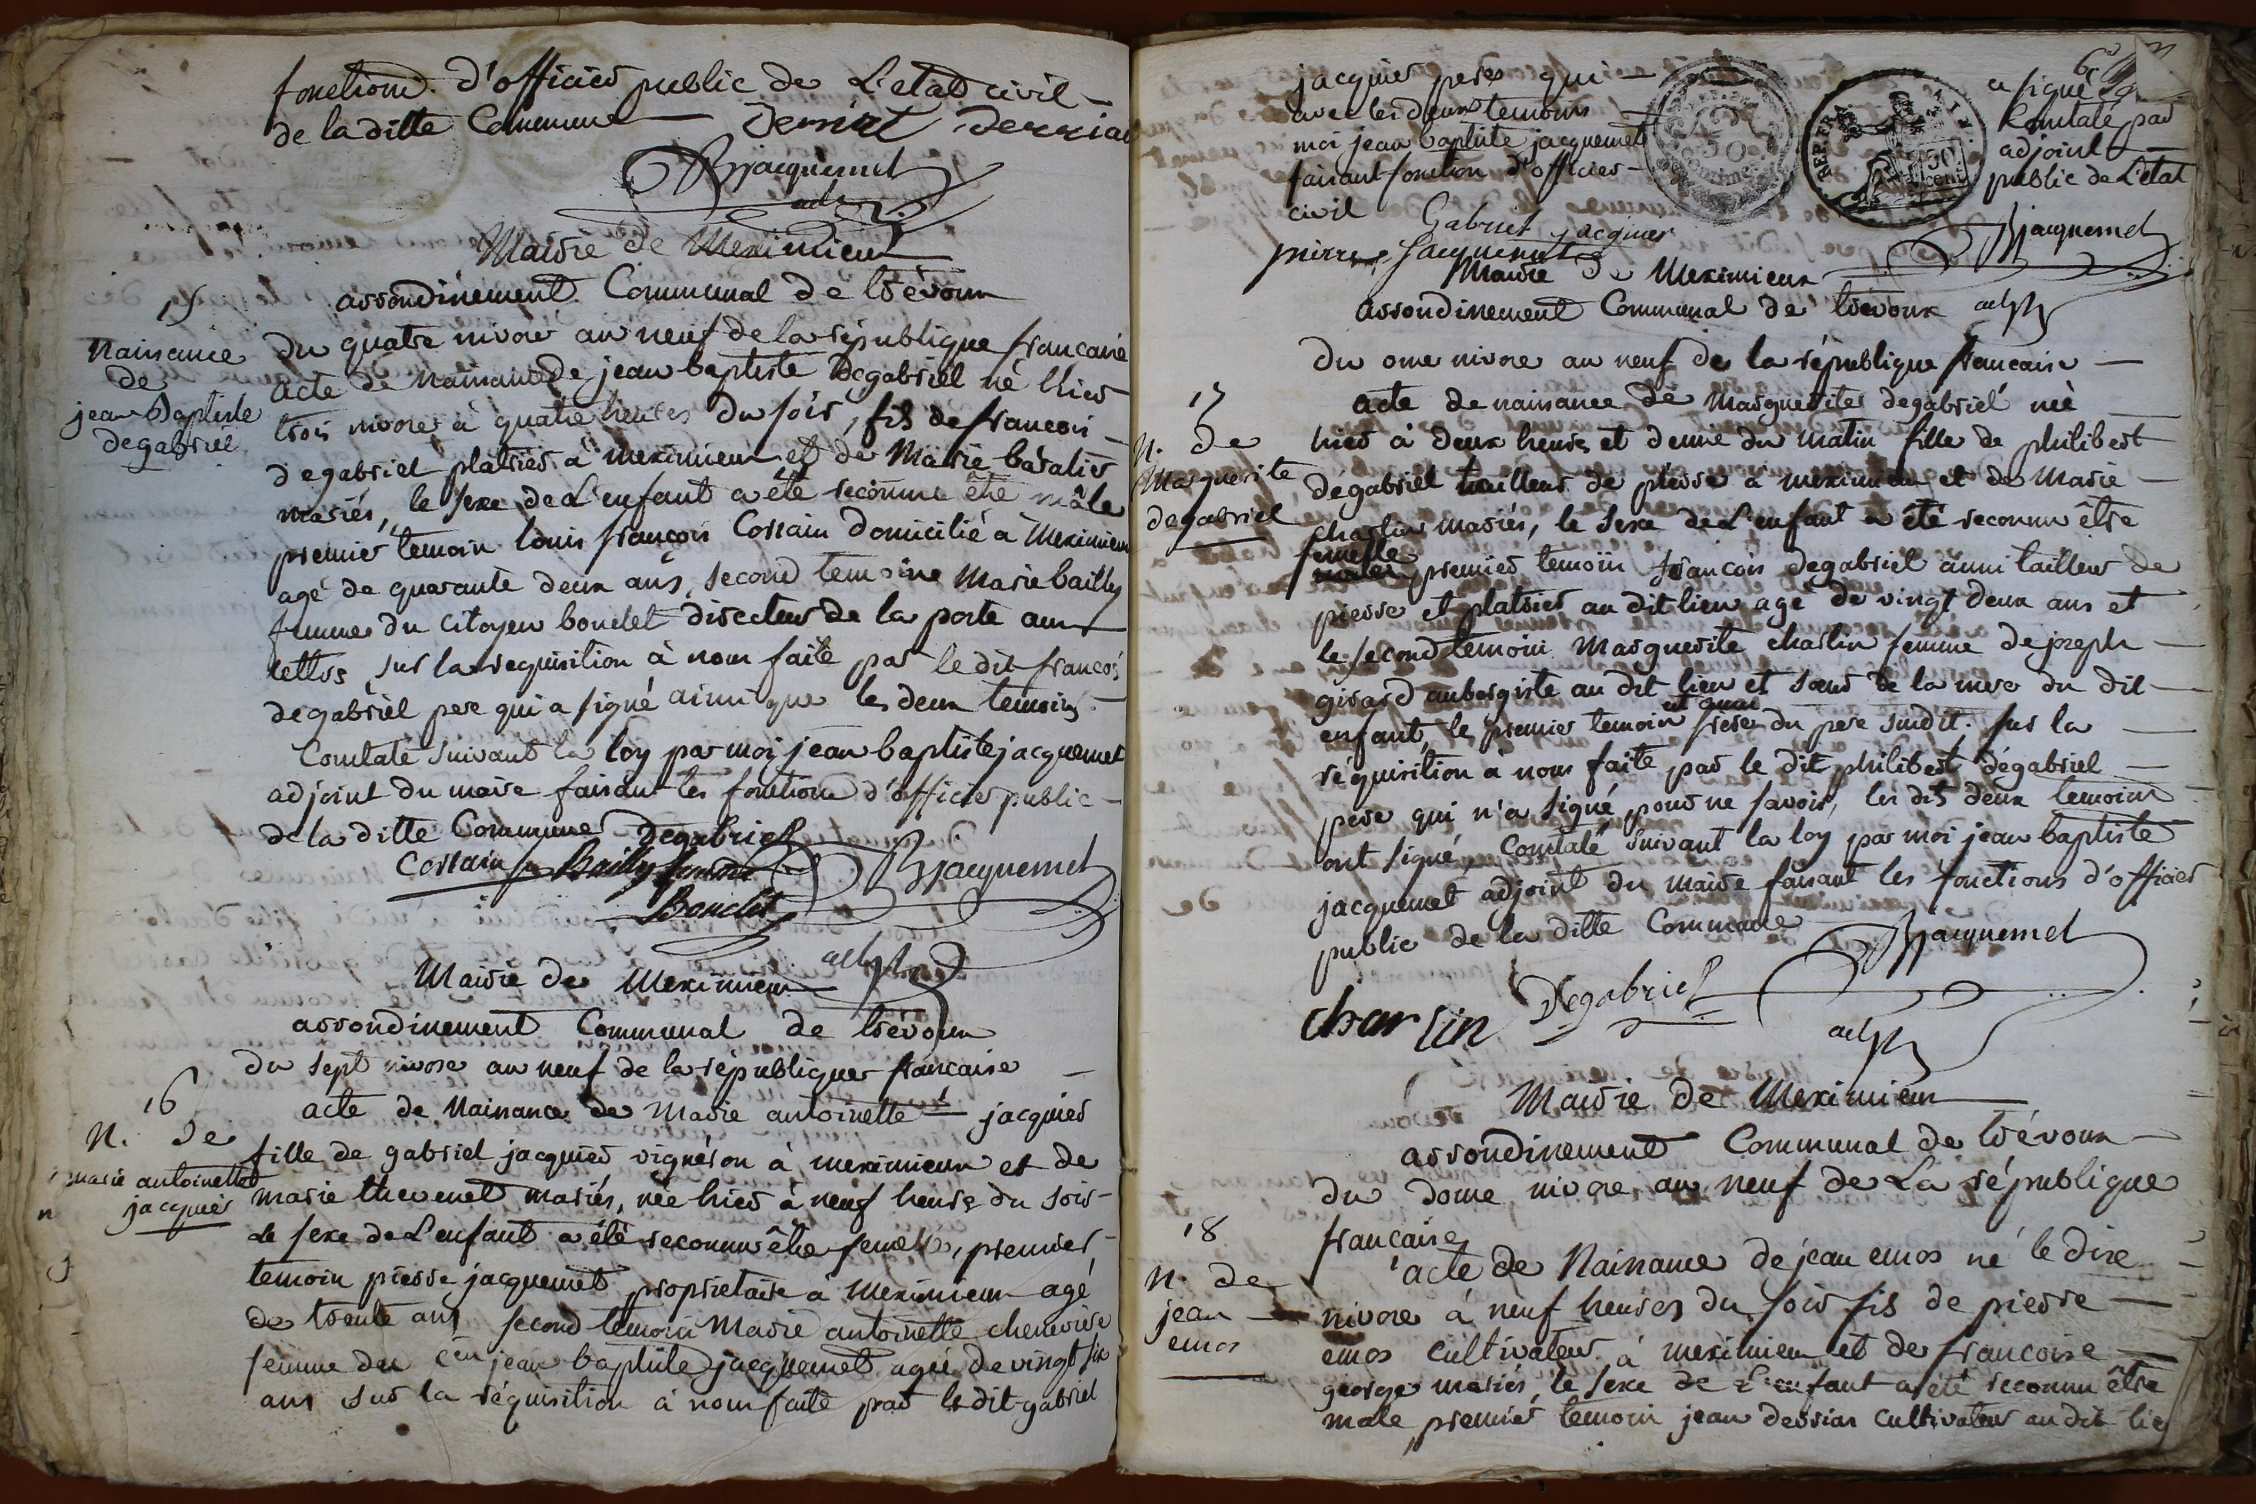 fonctions d'officier public de L'etat civil
de la ditte Commune Derriat Derria
JBjacquemet
adjt
Mairie de Meximieux
arrondinement Communal de trévoux
15
Naissance
de
jean Baptiste
degabriel
du quatre nivose an neuf de la république francaise
acte de Naissance de jean baptiste Degabriel né hier
trois nivose à quatre heures du soir, fils de francois
degabriel platrier à meximieux et de Marie baralier
mariés, le sexe de L'enfant a été reconnu être mâle
premier temoin louis françois Cossain domicilié à Meximieux
agé de quarante deux ans, second temoine Marie bailly
femme du Citoyen boudet directeur de la poste aux
lettres sur la requisition à nous faite par le dit francois
degabriel pere qui a signé ainsi que les deux temoins
Constaté suivant la loy par moi jean baptiste jacquemet
adjoint du maire faisant les fonctions d'officier public
de la ditte Commune Degabriel
Cossain Bailly femme JBjacquemet
Boudet
adjt
Mairie de Meximieux
arrondinement Communal de trévoux
du sept nivose an neuf de la république francaise
16
N. de
marie antoinette
jacquier
acte de Naissance de Marie antoinette jacquier
fille de gabriel jacquier vignéron à meximieux et de
marie thevenet mariés, née hier à neuf heures du soir
Le sexe de L'enfant a été reconnu être femelle, premier
temoin pierre jacquemet proprietaire à Meximieux agé
de trente ans second temoin Marie antoinette chenevier
femme du cen jean baptiste jacquemet agée de vingt six
ans sur la réquisition à nous faite par le dit gabriel
jacquier pere qui a signé
avec les deux temoins Constaté par
moi jean baptiste jacquemet adjoint
faisant fonction d'officier public de L'état
civil Gabriel jacquier
pierre Jacquemet JBjacquemet
REP. FRA.
50
cent
AIN
Mairie de Meximieux
arrondinement Communal de trévoux adjt
du onze nivose an neuf de la république francaise
17
N. de
Marguerite
degabriel
acte de naissance de Marguerite degabriel née
hier à deux heures et demie du matin fille de philibert
dégabriel tailleur de pierre à meximieux et de Marie
charlin mariés, le sexe de L'enfant a été reconnu être
femelle
premier temoin francois degabriel aussi tailleur de
pierre et platrier au dit lieu agé de vingt deux ans et
le second temoin Marguerite charlin femme de joseph
girard aubergiste au dit lieu et sœur de la mere du dit
enfant, le premier temoin frere du pere susdit. sur la
réquisition à nous faite par le dit philibert dégabriel
pere qui n'a signé pour ne savoir, les dits deux temoins
ont signé, Constaté suivant la loy par moi jean baptiste
jacquemet adjoint du maire faisant les fonctions d'officier
public de la ditte Commune JBjacquemet
charlin Degabriel
adjt
Mairie de Meximieux
arrondinement Communal de trévoux
du douze nivose an neuf de La république
francaise
18
N. de
jean
emos
acte de Naissance de jean emos né le dixe
nivose à neuf heures du soir fils de pierre
emos cultivateur à meximieux et de francoise
george mariés, le sexe de L'enfant a été reconnu être
male, premier temoin jean derrias cultivateur au dit lieu